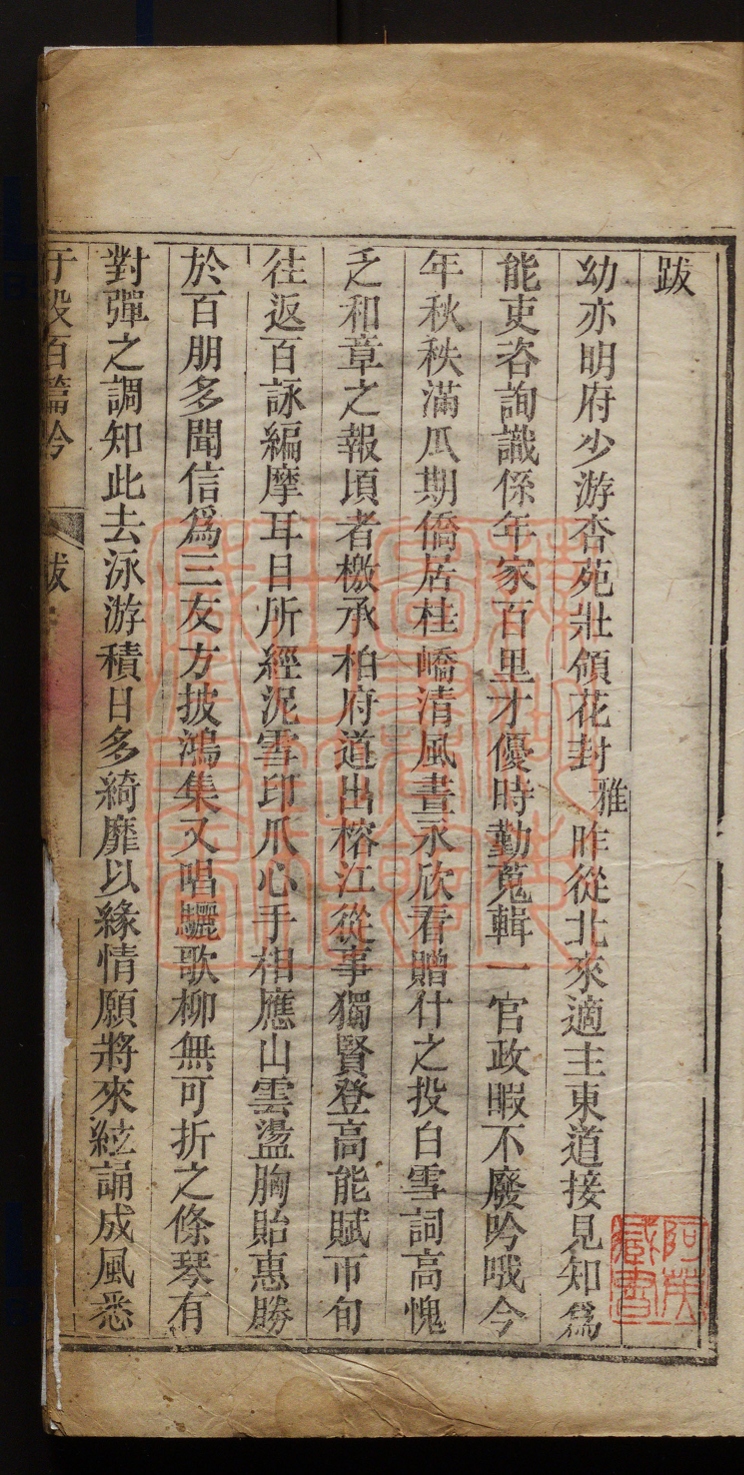 跋
幼亦明府少游杏苑壯領花封雅昨從北來適主東道接見知爲
能吏咨詢識係年家百里才優時勤蒐輯一官政暇不廢吟哦今
年秋秩滿瓜期僑居桂嶠清風晝永欣看贈什之投白雪詞高愧
乏和章之報頃者檄承柏府道出榕江從事獨賢登高能賦帀旬
往返百詠編摩耳目所經泥雪印爪心手相應山雲盪胸貽惠勝
於百朋多聞信爲三友方披鴻集又唱驪歌柳無可折之條琴有
對彈之調知此去泳游積日多綺靡以緣情願將來絃誦成風悉
于役百篇吟 跋
藏書